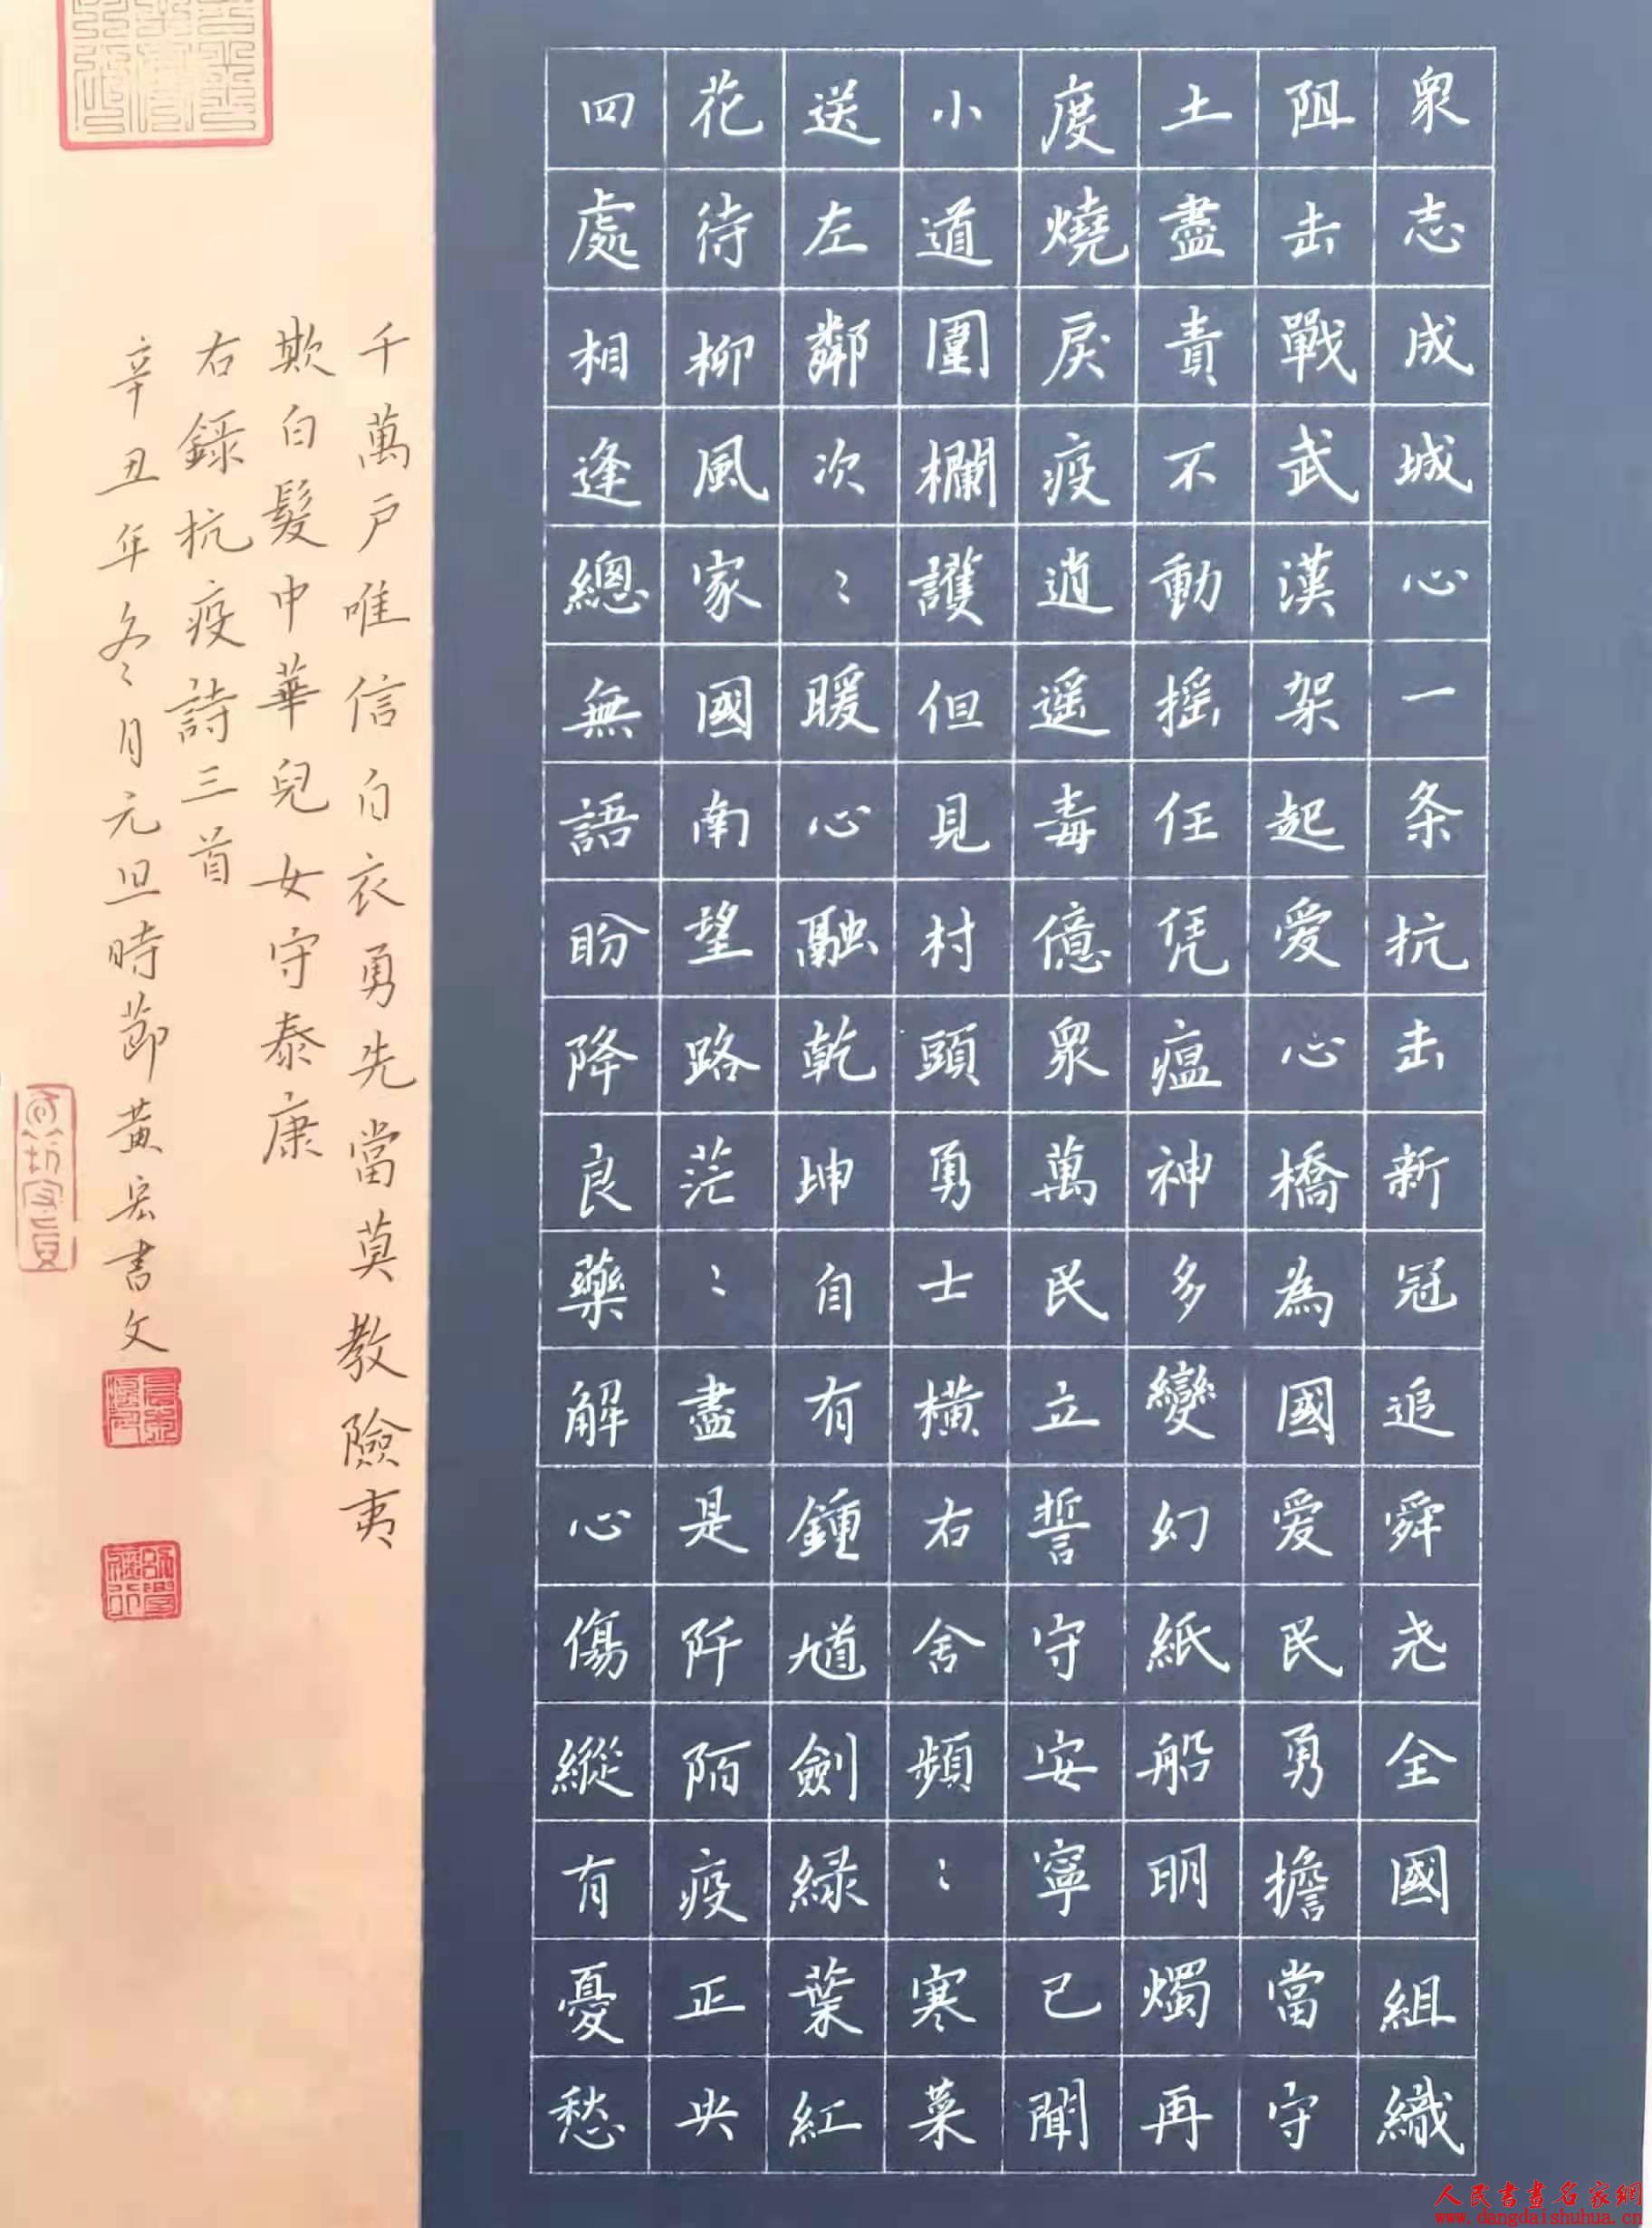 衆志成城心一条抗击新冠追舜尧全國組織
阻击戰武漢架起爱心橋為國爱民勇擔當守
土盡責不動摇任凭瘟神多變幻紙船明燭再
度燒戾疫逍遥毒億衆萬民立誓守安寧已聞
小道圍欄護但見村頭勇士横右舍頻〻寒菜
送左鄰次〻暖心融乾坤自有鍾馗劍緑葉紅
花待柳風家國南望路茫〻盡是阡陌疫正央
四處相逢總無語盼降良藥解心傷縱有憂愁
千萬户唯信白衣勇先當莫教險夷
欺白髮中華兒女守泰康
右錄抗疫詩三首
辛丑年冬月元旦時節黄宏書文
人民書畫名家網
www.dangdaishuhua.cn